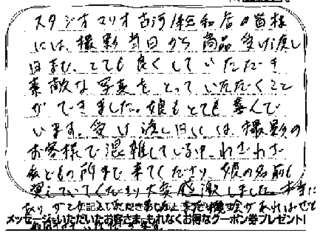 スタジオマリオ古河店の皆様
には、撮影当日から商品受け渡し
日まで、とても良くしていただき
素敵な写真をとっていただくこと
ができました。娘もとても喜んで
います。受け渡し日には、撮影の
お客様で混雑している中、わざわざ
私どもの所まで来てくださり、娘の名前も
呼んでいてくださり大変感激しました。本当に
ありがとう
メッセージをいただいたお客さまにもれなくお得なクーポン券プレゼント!